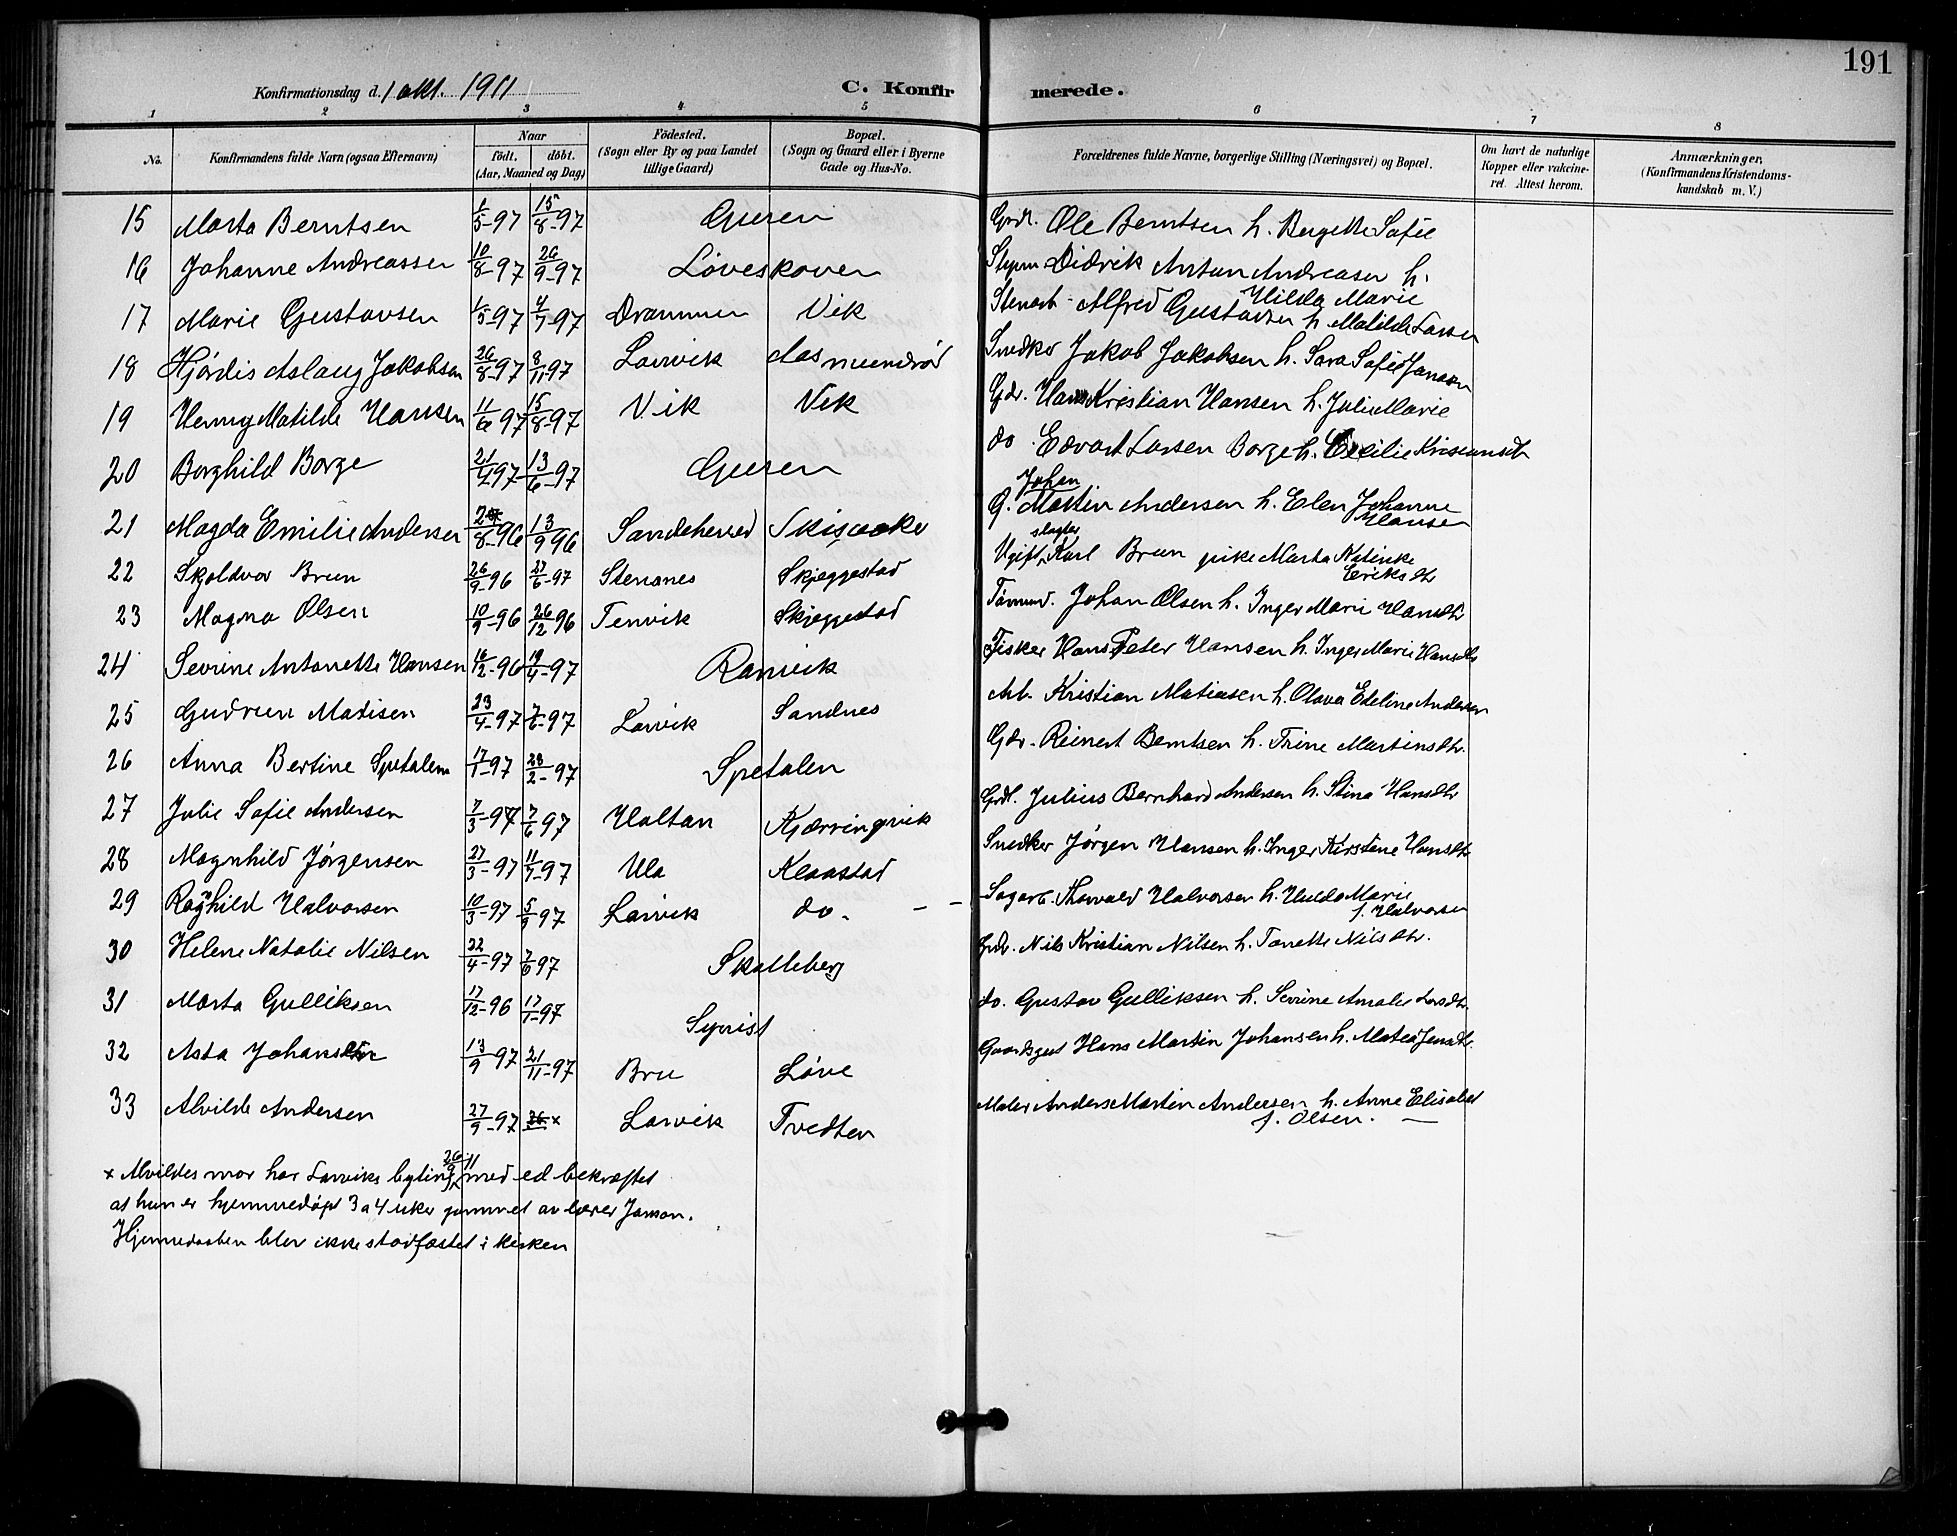 191
Konfirmationsdag d. 1 okt. 1911 C. Konfirmerede.
1 2 3 4 5 6 7 8
No. Konfirmandens fulde Navn (ogsaa Efternavn) Naar födt. döbt. (Aar, Maaned og Dag) Födested. (Sogn eller By og paa Landet tillige Gaard) Bopæl. (Sogn og Gaard eller i Byerne Gade og Hus-No. Forældrenes fulde Navne, borgerlige Stilling (Næringsvei) og Bopæl. Om havt de naturlige Kopper eller vakcineret. Attest herom. Anmærkninger, (Konfirmandens Kristendomskundskab m. V.)
15 Marta Berntsen 1/5-97 15/8-97 Gusen Grdl. Ole Berntsen h. Bergette Sofie
16 Johanne Andreassen 10/8-97 26/9-97 Løveskoven Styrm Didrik Anton Andreasen h. Hilda Marie
17 Marie Gustavsen 1/5-97 4/7-97 Drammen Vik Stenarb. Alfred Gustavsen h Matilde Larsen
18 Hjørdis Aslaug Jakobsen 26/8-97 8/11-97 Larvik Aasmundrød Snedker Jakob Jakobsen h. Sara Sofie Jansen
19 Henny Matilde Hansen 11/6-97 15/8-97 Vik Vik Gdr. Hans Kristian Hansen h. Julie Marie
20 Borghild Borge 21/4-97 13/6-97 Gusen do. Edvart Larsen Borge h. Cecilie
21 Magda Emilie Andersen 2/8-96 13/9-96 Sandeherred G. Johan Martin Andersen h. Elen Johanne Hansen
22 Skjoldvor Brun 26/9-96 27/6-97 Stensnes Skjeggestad Ugift slagter Karl Brun pike Marta Katinke Eriksdtr
23 Magna Olsen 10/9-96 26/12-96 Tenvik Skjeggestad Tømmd. Johan Olsen h. Inger Marie Hansdtr
24 Sevrine Antonette Hansen 16/12-96 19/4-97 Ranvik Fisker Hans Peter Hansen h. Inger Marie Hansdtr
25 Gudrun Matisen 23/4-97 7/6-97 Larvik Sandnes Arb. Kristian Matiasen h. Olava Edeline Andersen
26 Anna Bertine Spetalen 17/1-97 28/2-97 Spetalen Gdr. Reinert Berntsen h. Trine Martinsdtr.
27 Julie Sofie Andersen 7/3-97 7/6-97 Haltan Kjærringvik Grdl. Julius Bernhard Andersen h. Stina Hansdtr
28 Magnhild Jørgensen 27/3-97 11/7-97 Ula Klaastad Snedker Jørgen Hansen h. Inger Kirstine Hansdtr
29 Ragnhild Halvorsen 10/3-97 5/9-97 Larvik do. Sagarb. Thorvald Halvorsen h. Hulda Marie f. Halvorsen
30 Helene Natalie Nilsen 22/4-97 7/6-97 Skalleberg Grdr. Nils Kristian Nilsen h. Tonette Nilsdtr.
31 Marta Gulliksen 17/12-96 17/1-97 Syrist do. Gustav Gulliksen h. Sevrine Amalie Larsdtr.
32 Asta Johansen 13/9-97 21/11-97 Bru Løve Gaardsgut Hans Martin Johansen h. Matea Jensdtr.
33 Alvilde Andersen 27/9-97 x Larvik Tvedten Maler Anders Martin Andersen h. Anne Elisabet f. Olsen.
x Alvildes mor har Larviks byting 26/9 11 med ed bekræftet
at hun er hjemmedøpt 3 a 4 uker gammel av lærer Janson.
Hjemmedaaben blev ikke stadfæstet i kirken